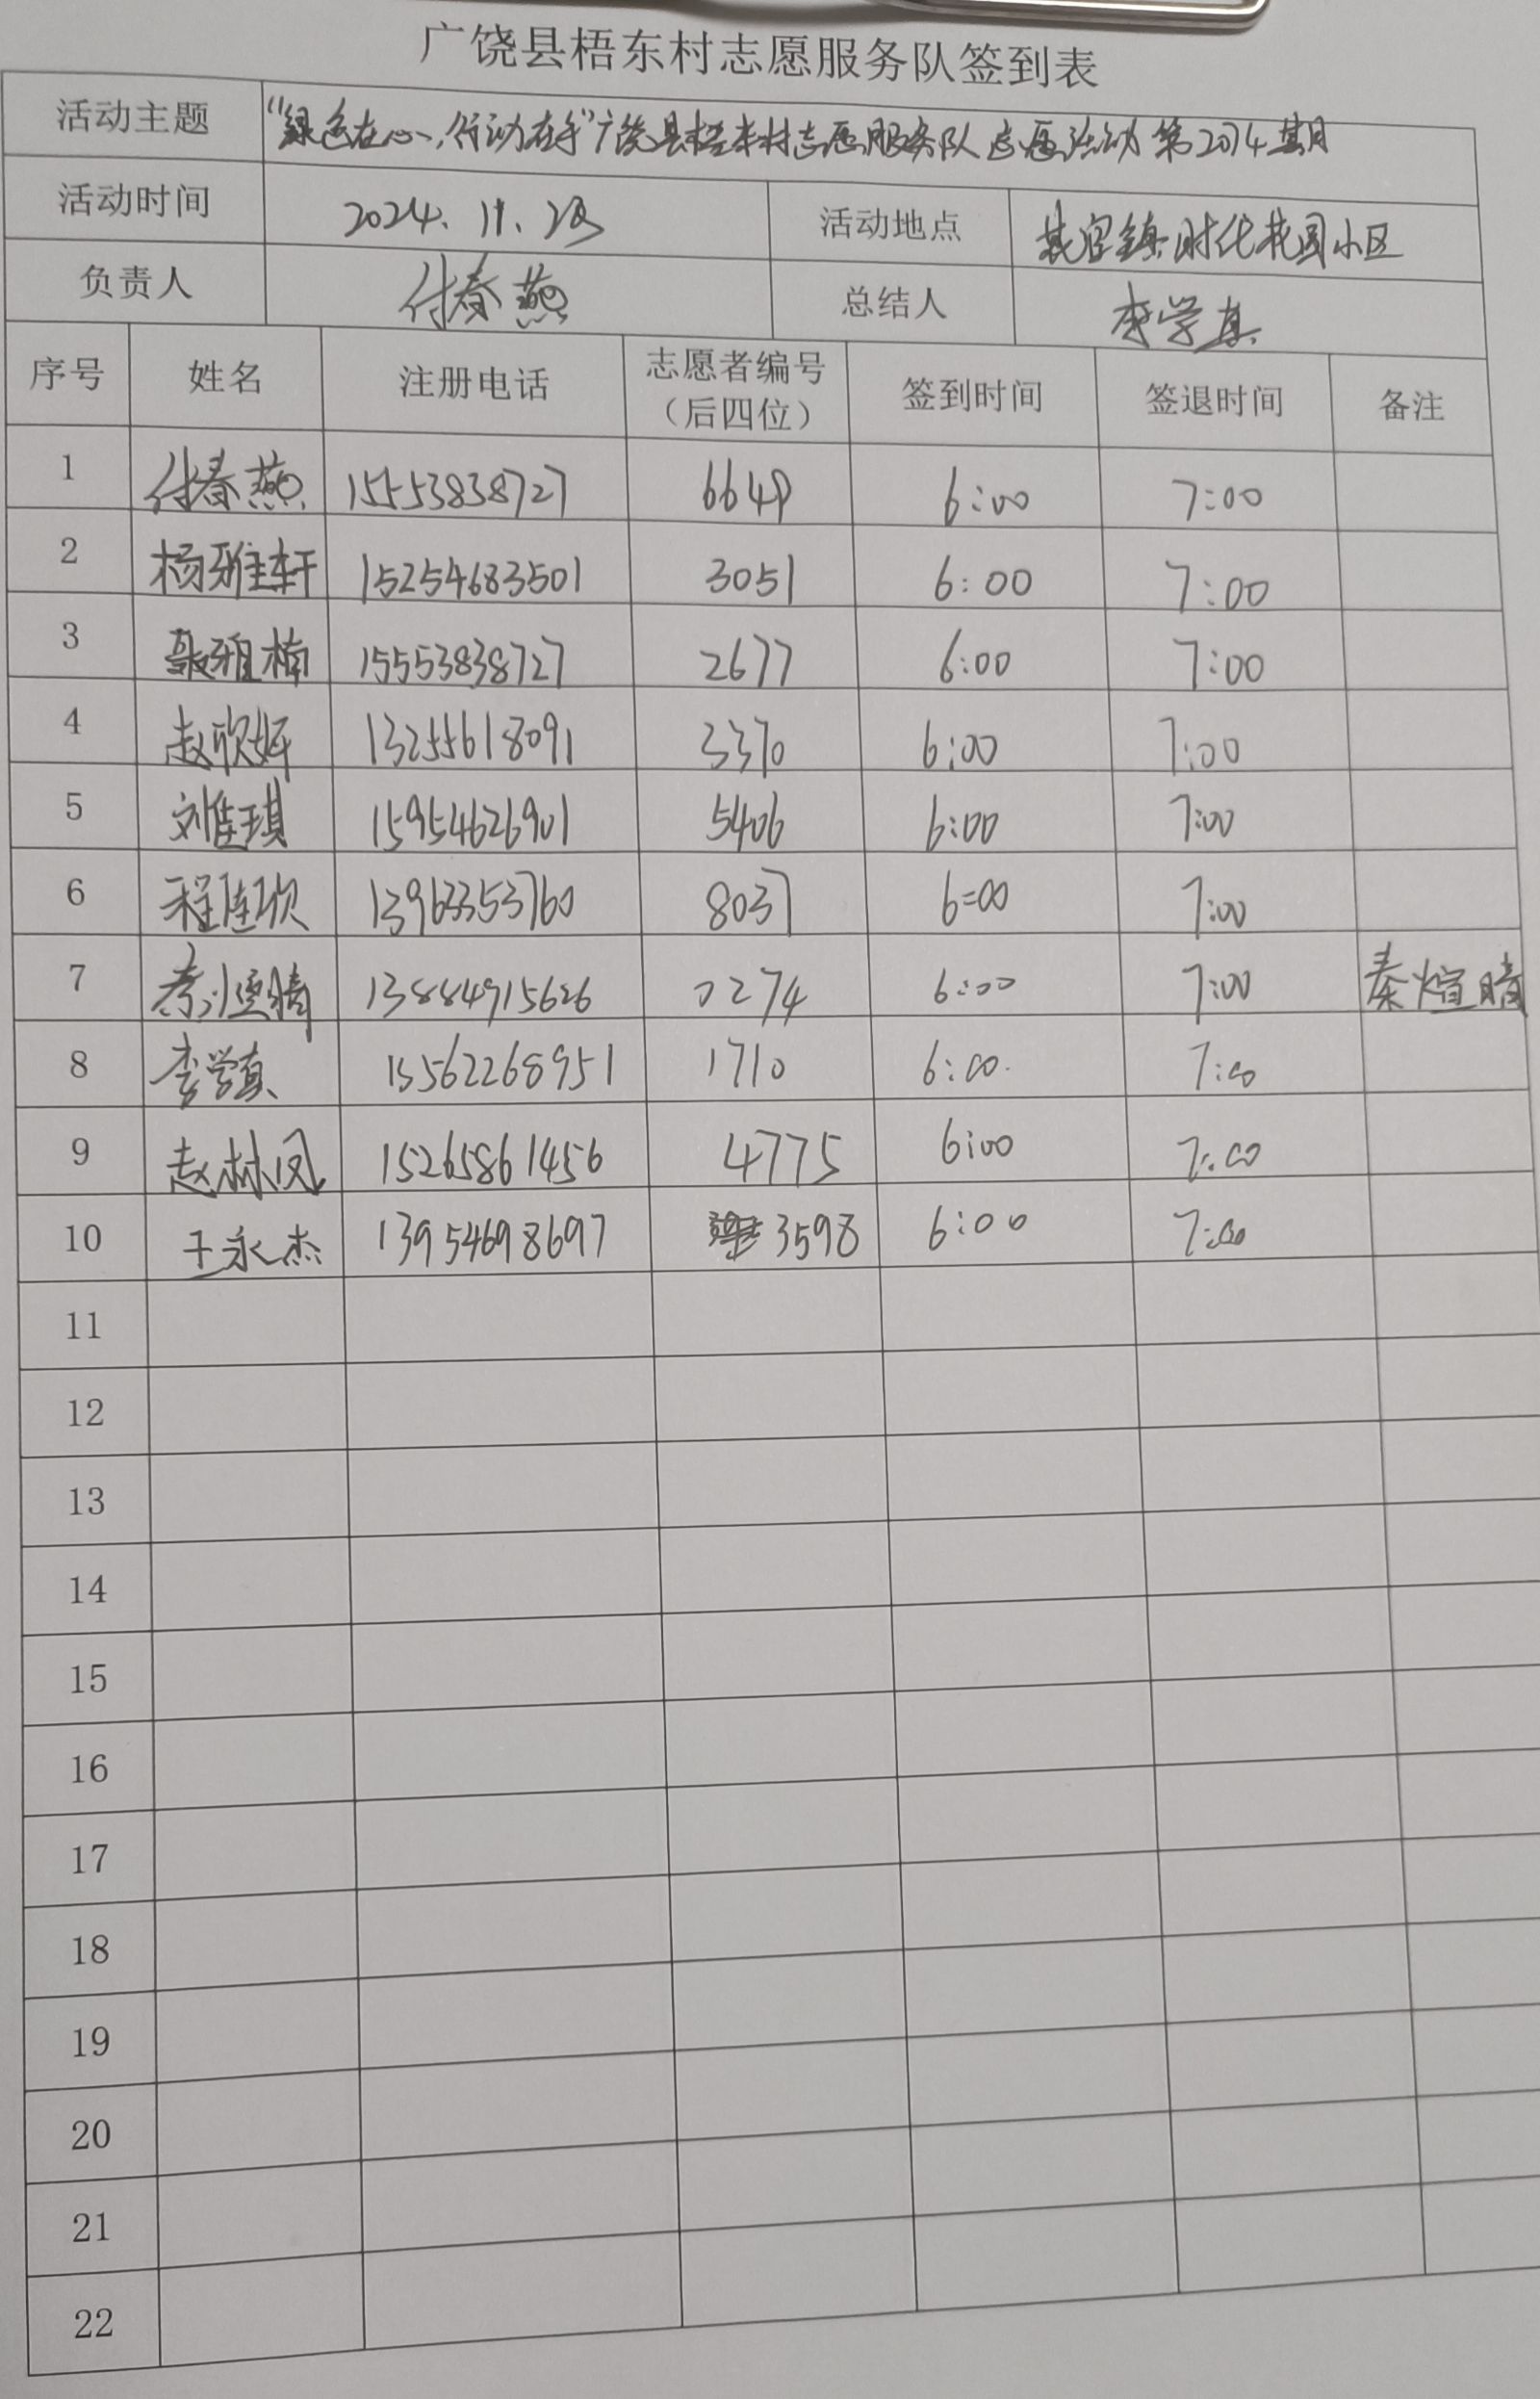 广饶县梧东村志愿服务队签到表
活动主题 “绿色在心,行动在手”广饶县梧东村志愿服务队志愿活动第2074期
活动时间 2024.11.28 活动地点 乐安镇时代花园小区
负责人 付春燕 总结人 李学真
序号 姓名 注册电话 志愿者编号（后四位） 签到时间 签退时间 备注
1 付春燕 15553838727 6649 6:00 7:00
2 杨雅轩 15254683501 3051 6:00 7:00
3 张雅楠 15553838727 2677 6:00 7:00
4 赵欣妍 13255618091 3370 6:00 7:00
5 刘佳琪 15954626901 5406 6:00 7:00
6 程佳欣 13963353760 8037 6:00 7:00
7 秦煊晴 13884915626 0274 6:00 7:00 秦煊晴
8 李学真 15562268951 1710 6:00 7:00
9 赵林凤 15265861456 4775 6:00 7:00
10 王永杰 13954698697 3598 6:00 7:00
11
12
13
14
15
16
17
18
19
20
21
22